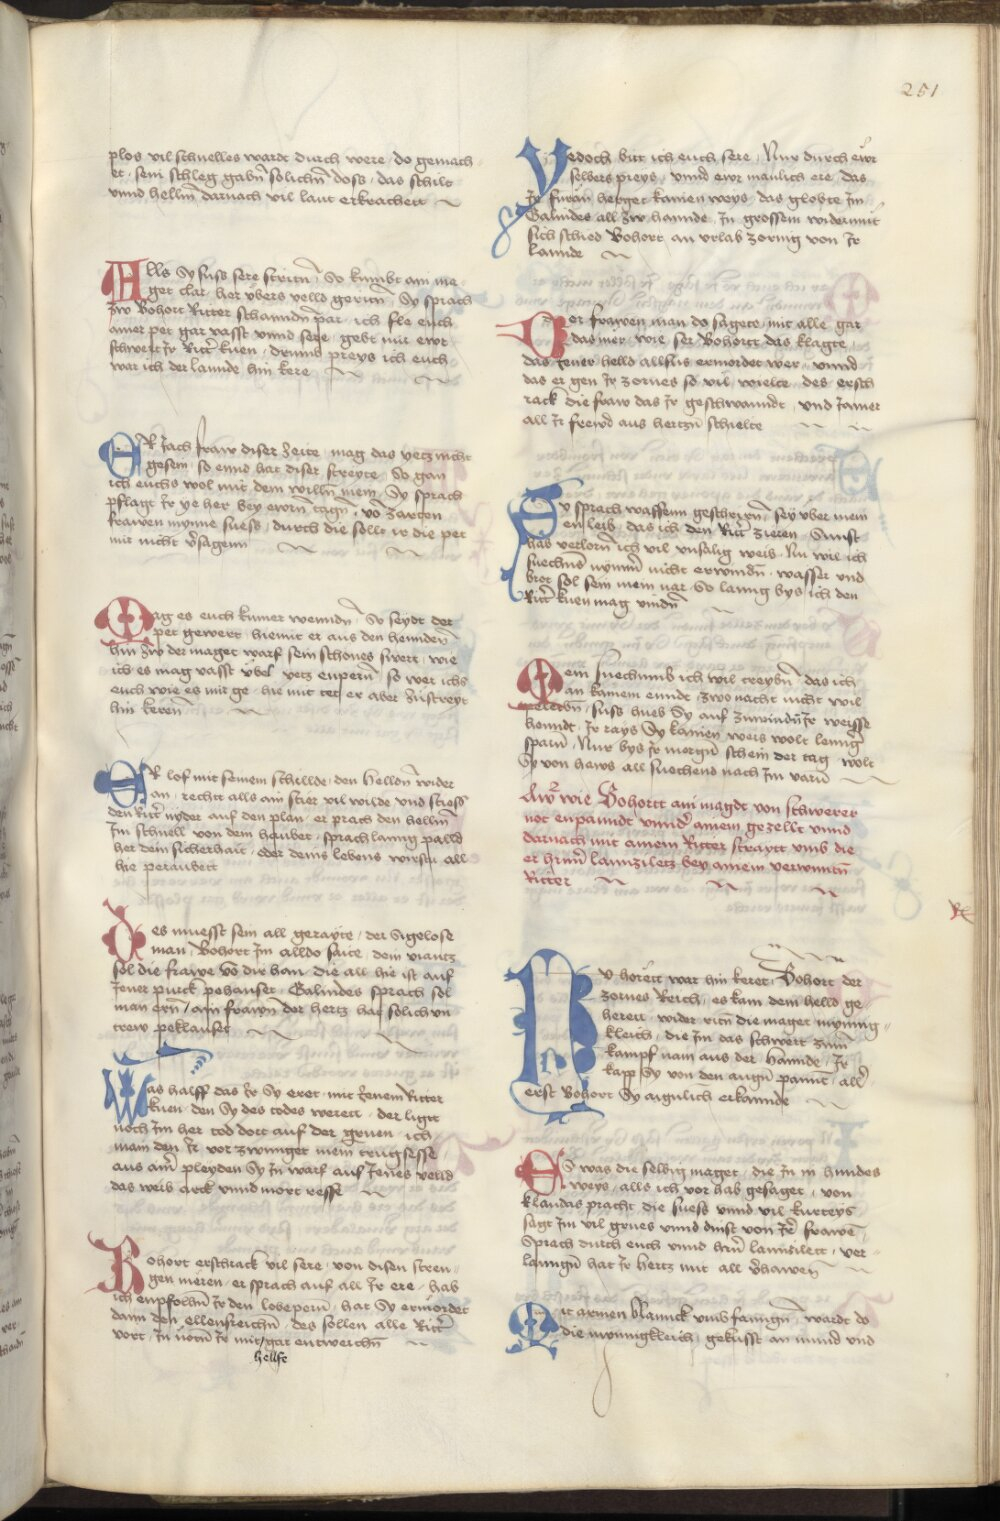 251
plos vil schnelles wardt durch were, do gemach
et, sein schleg gabñ solichñ doss, das schilt
vnnd hellm̃ darnach vil laut erkrachett
Alls Sy suss sere stritñ, So kumbt ain ma
get clar, her vbers velld geritñ, Sy sprach
Zw Bohort Ritter schamndñ par, ich fle euch
ainer pet gar vasst vnnd sere, gebt mir ewr
schwert Jr Ritr̃ kuen, drumb preys ich euch
war ich der lannde hin kere
ER Jach fraw diser Zeite, mag das yetz nicht
gesein, so ennd hat diser streyte, So gan
ich euchs wol mit dem willñ mein, Sy sprach
pflagt Jr ye her bey ewrñ tagñ, vo zarten
frawen mynne suess, durch die sollt ir die pet
mir nicht v̄sagenn
Mag es euch kumer wenndñ, So seydt der
pet gewert, hiemit er aus den henndeñ
hin Zw der maget warf sein schones swert, wie
ich es mag vasst übel yetz enpern̄, so wer ichs
euch wie es mir ge, hie mit tet er aber Zustreyt
hin keren
ER lof mit seinem schillde, den hellden wider
an, recht alls ain stier vil wilde vnd stiess
den Ritr̃ nyder auf den plan, er prach den hellm̃
Jm schnell von dem haubet, sprach lanng palld
her dein sicherhait, oder deins lebens wirstu all
hie peraubett
Des muesst sein all gerayte, der Sigelose
man, Bohort Jm alldo saite, dein vianntz
sol die frawe võ dir han, die all hie ist auf
Jener purck pehauset, Galindes sprach sol
man ern̄, ain frawñ der hertz hat solich vn
trew peklauset
Was halff das Jr Sy eret, mit Jenem Ritter
kuen, den Sy des todes weret, der ligt
noch Jm her tod dort auf der gruen, ich
main den Jr vor zwunget mein trugsesse
aus ain̄ pleyden Sy Jn warf auf Jenes velld
das weib arck vnnd mort resse
Bohort erschrack vil sere, von disen stren
gen mëren, er sprach auf all Jr ere, hab
ich enpfolhñ Jr den lobepern, hat Sy ermördet
dann den ellensreichñ, des sollen alle Ritr̃
vort, Jn nötñ Jr mit gar entweichñ
hellfe
Yedoch bitt ich euch sere, Nur durch ewr
selbers preys, vnnd ewr manlich ere, das
Jr fürän herget kainen weys, das globte Jm
Galindes all Zw hannde, Jn grossem widermut
sich schied Bohort, an vrlab zornig von Jr
lannde
Der frawen man do sagete, mit alle gar
das mer, wie ser Bohortt das klagte,
das Jener helld allsus ermordet wer, vnnd
das er gen Jr zornes so vil wielte, des ersch
rack die fraw das Jr geschwanndt, vnd Jamer
all Jr frewd aus hertzñ schielte
Sy sprach waffenn geschryrñ, sey vber mein
en leib, das ich den Ritr̃ zieren, Sunst
hab verlorñ ich vil vnsälig weib, Nu wil ich
suechns nymm̃ nicht erwindñ, wasser vnd
brot sol sein mein nar, So lanng bys ich den
Ritr̃ kuen mag vindñ
Mein suechumb ich wil treybñ, das ich
an kainem ennde, zwo nacht nicht wil
peleibñ, suss hueb Sy auf zuwindñ Jr weysse
henndt, Jr rays Sy kainen weis wolt lenng
sparñ, Nur bys Jr morgñ schein der tag, wolt
Sy von haws all suechend nach Jm varñ
Aw̃ wie Bohortt ain magdt von schwerer
not enpanndt vnnd ainem gezellt vnnd
darnach mit ainem Ritter straytt vmb die
er hrnn̄ lannziletz bey ainem verwuntñ
Ritter
Nu höret war hin keret, Bohort der
zornes Reich, es kam dem helld ge
heret, wider ritñ die maget mynnig
kleich, die Jm das schwert zum̃
kampf nam aus der hannde, Jr
kapp Sy von den augñ pannt, all
erst Bohort Sy aignlich erkannde
ES was die selbig maget, die Jn in hundes
weys, alls ich vor hab gesaget, von
klaudas pracht die suess vnnd vil kurteys,
sagt Jm vil grues vnnd dinst von Jr̃ frawẽ,
Sprach durch euch vnnd hrñ lannzilett, ver
lanngñ hat Jr hertz mit all v̄hawen
Mit armen blannck vmbfanngñ, wardt do
die mynnigkleich, gekusst an mund vnd